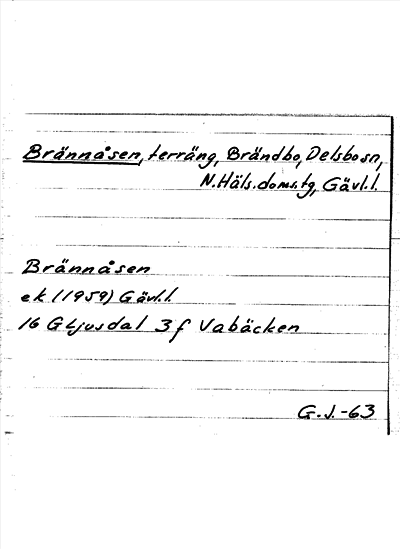 Brännåsen, terräng, Brändbo, Delsbo sn,
N.Häls.doms.tg, Gävl.l.
Brännåsen
ek (1959) Gävl.l.
16 G Ljusdal 3 f Vabäcken
G.J.-63